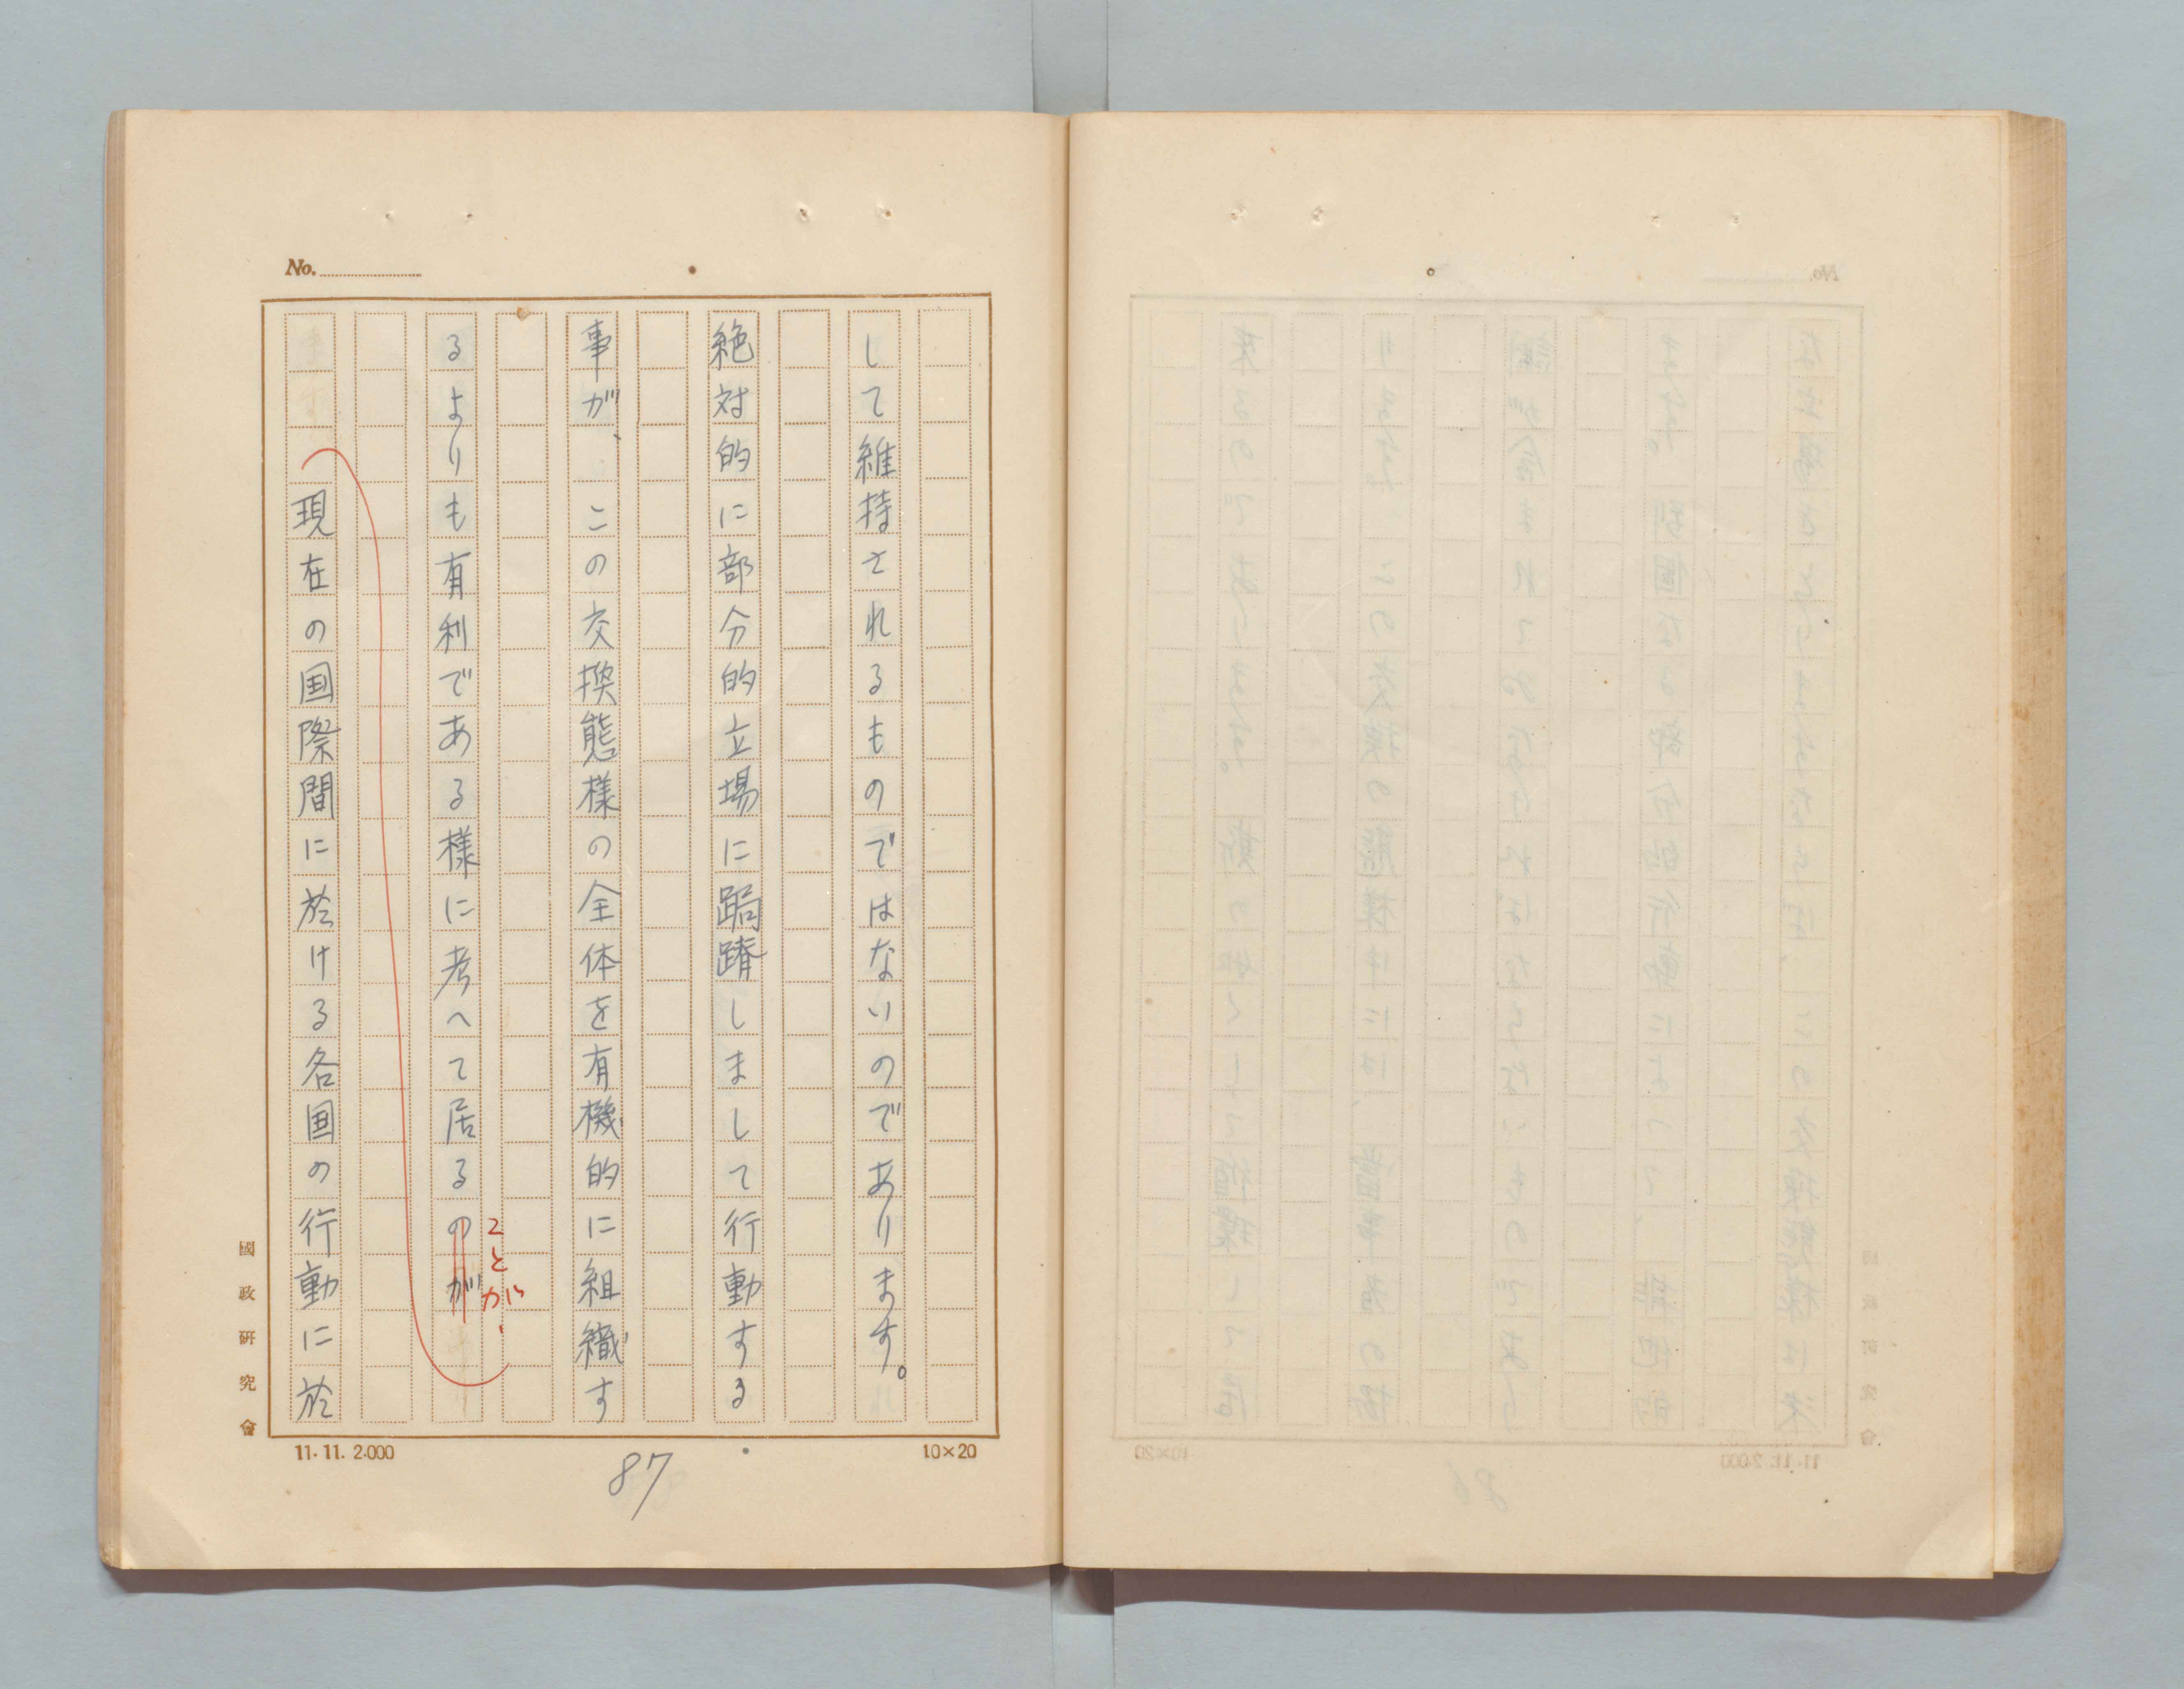 No.
して維持されるものではないのであります。
絶対的に部分的立場に跼蹐しまして行動する
事が、この交換態様の全体を有機的に組織す
るよりも有利である様に考へて居るのが
ことが、
現在の国際間に於ける各国の行動に於
國政研究會
11.11.2.000
10×20
87